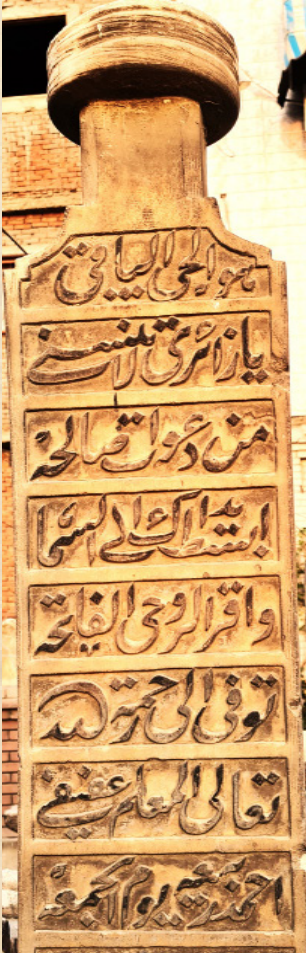 هو الحي الباقي
يا زائري لا تنسني
من دعوات صالحه
ابسط يداك الي السما
واقرا لروحي الفاتحه
توفي الى رحمة الله
تعالى المعلم عفيفي
احمد يوم الجمعه